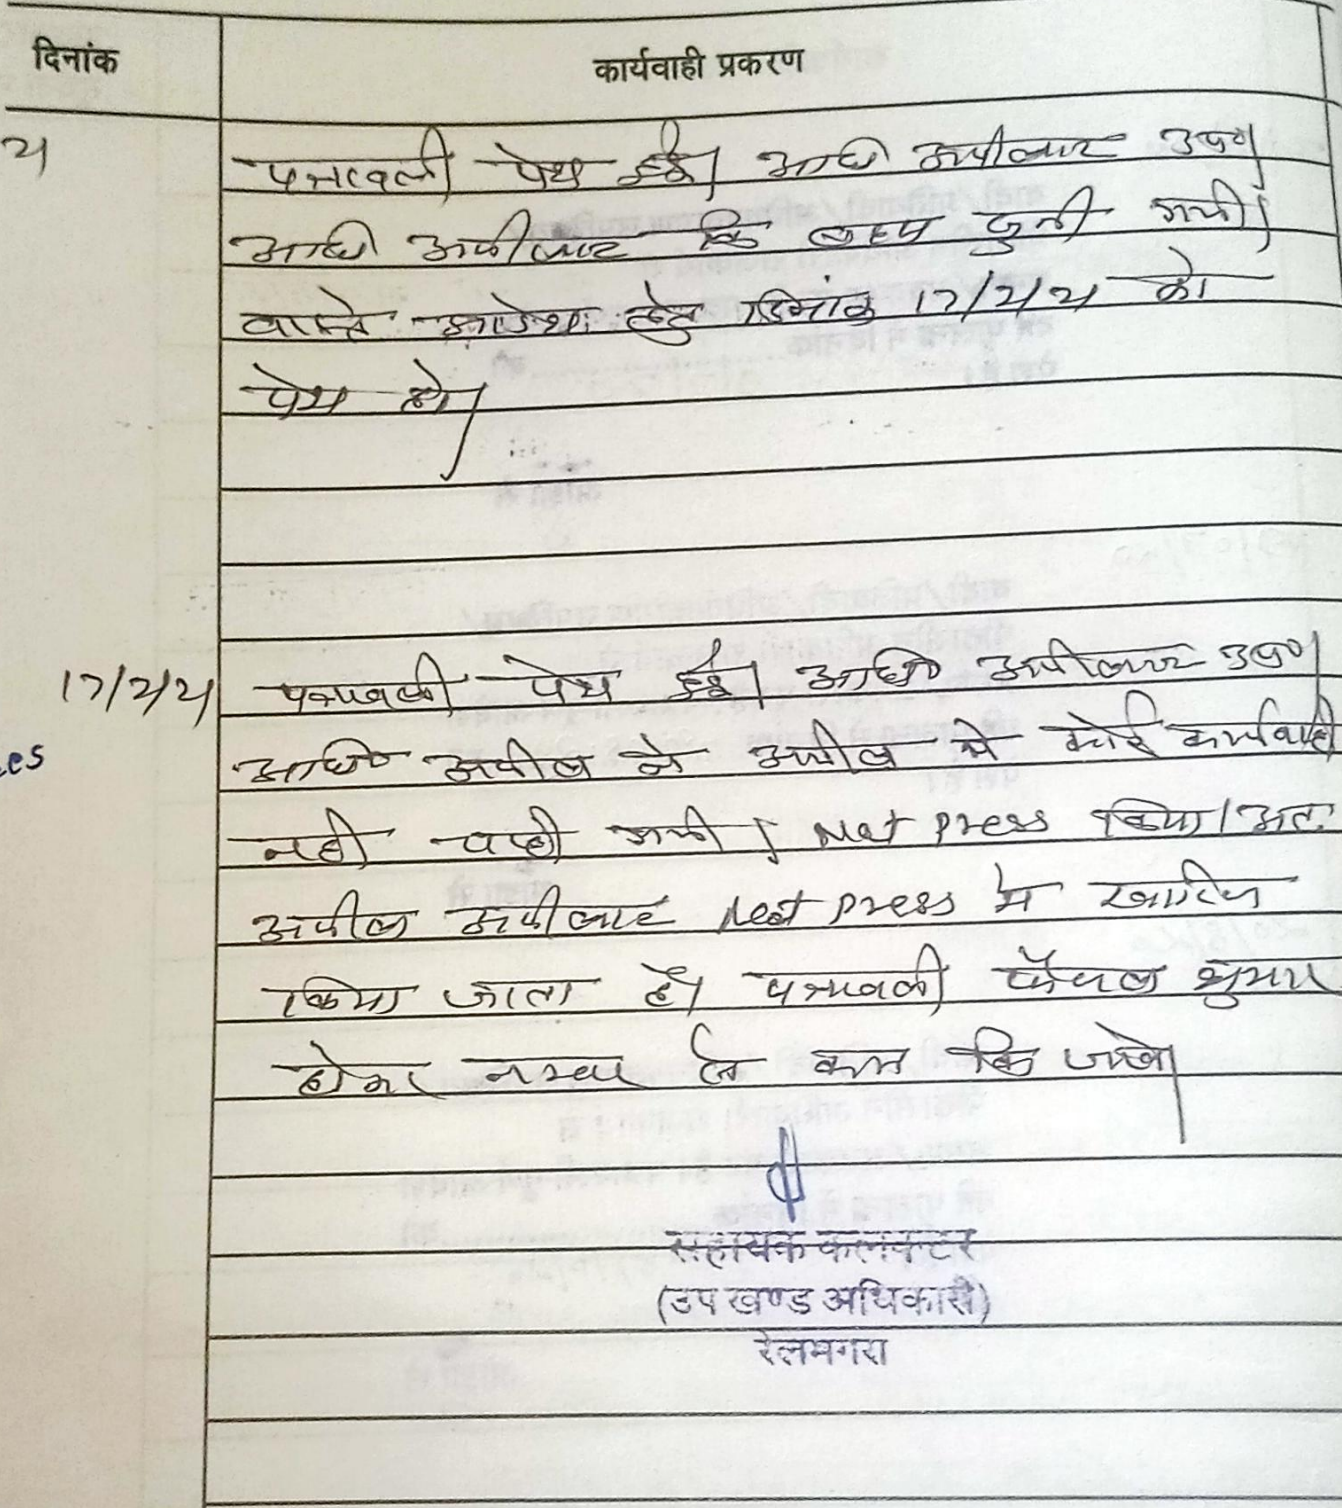 दिनांक कार्यवाही प्रकरण
पत्रावली पेश हुई। अधि अपीलार्ट उप०
अधि अपीलार्ट कि बहस सुनी गयी।
वास्ते आदेश हेतु दिनांक 17/2/21 को
पेश हो।
17/2/21 पत्रावली पेश हुई। अधि० अपीलार्ट उप०
अधि० अपील ने अपील में कोई कार्यवाही
नही चाही गयी। Not press किया। अतः
अपील अपीलार्ट Not press में खारिज
किया जाता है। पत्रावली फैसल शुमार
होकर नम्बर से कम कि जावे।
सहायक कलक्टर
(उप खण्ड अधिकारी)
रेलमगरा